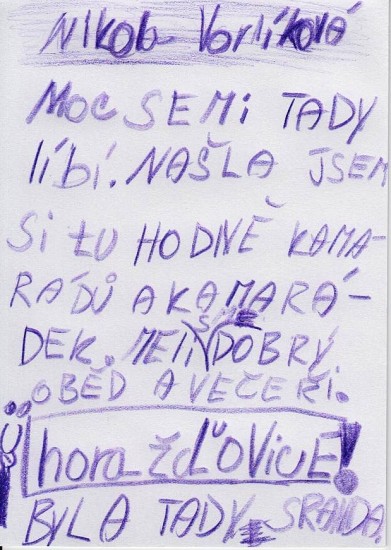 Nikola Vorlíková
MOC SE Mi TADY
líbí. NAŠLA JSEM
Si tu HODNĚ KAMA-
RÁDŮ A KAMARÁ-
DEK. MĚLI SME DOBRÝ
OBĚD A VEČEŘi.
horažďoVicE!
BYLA TADY SRANDA.